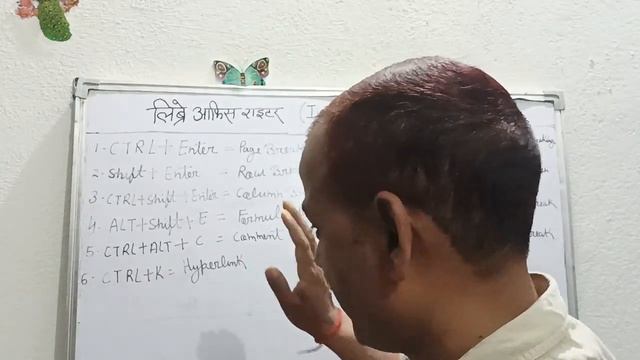 लिब्रे ऑफिस राइटर (I
1. CTRL + Enter = Page Break
2. Shift + Enter - Row Bre
3. CTRL + Shift + Enter = Column
4. ALT + Shift + E = Formul
5. CTRL + ALT + C = Comment
6. CTRL + K = Hyperlink